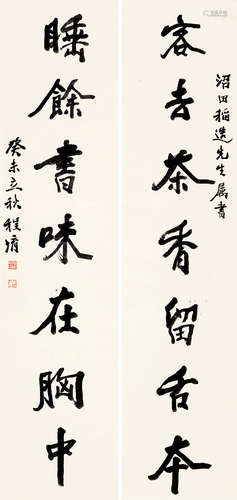 沼田稻逸先生属书
客去茶香留舌本
睡餘書味在胸中
癸未立秋程淯